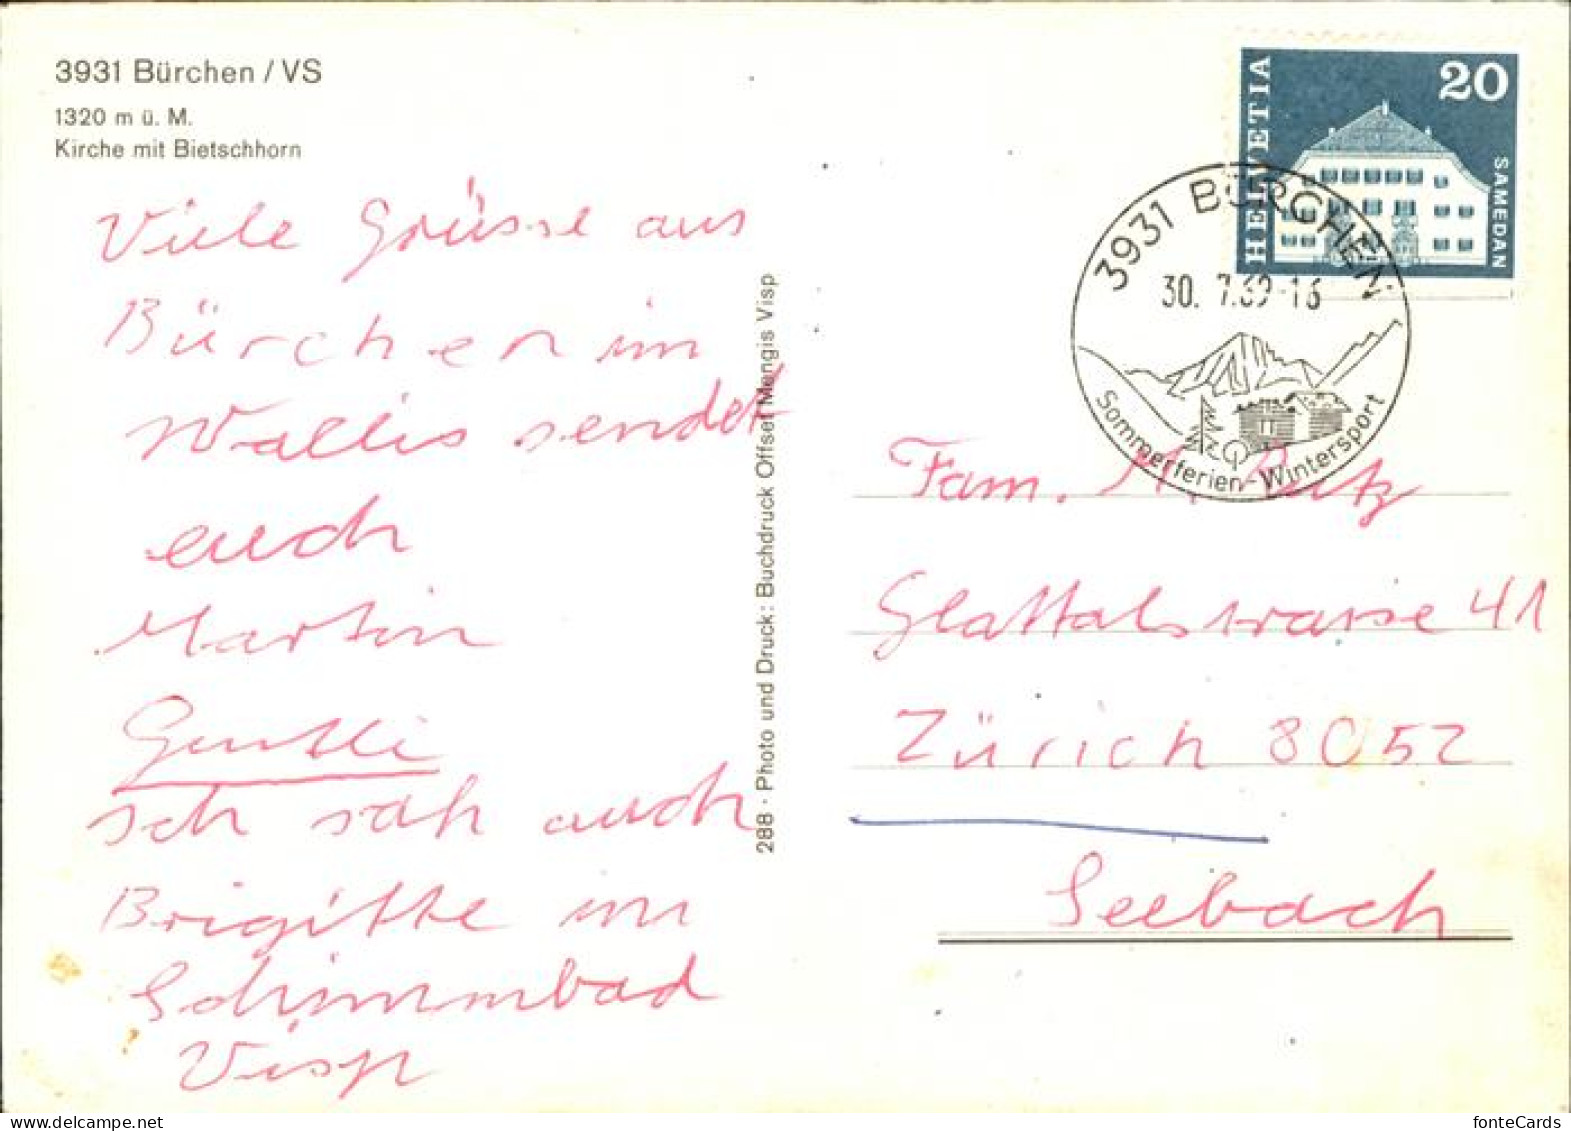 3931 Bürchen / VS
1320 m ü. M.
Kirche mit Bietschhorn
Viele Grüsse aus
Bürchen im
Wallis sendet
euch
Martin
Ich sah auch
Brigitte im
Schwimmbad
Visp
288 · Photo und Druck: Buchdruck Offset Mengis Visp
HELVETIA
20
SAMEDAN
3931 BÜRCHEN
30. 7.69-16
Sommerferien-Wintersport
Fam.
Glattalstrasse 41
Zürich 8052
Seebach
fonteCards